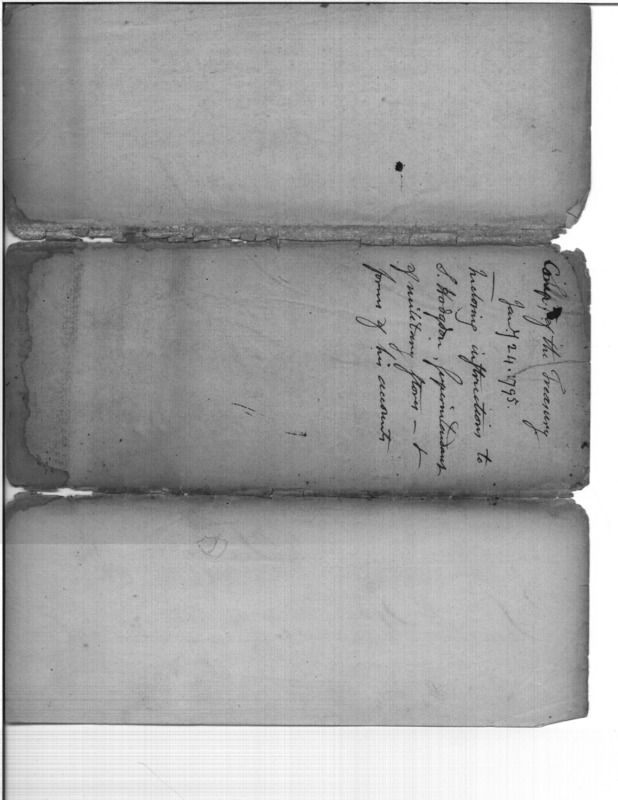 Comp. of the Treasury
Jany 24. 1795
Inclosing instructions to
S. Hodgdon, Superintendant
of military stores — &
forms of his accounts